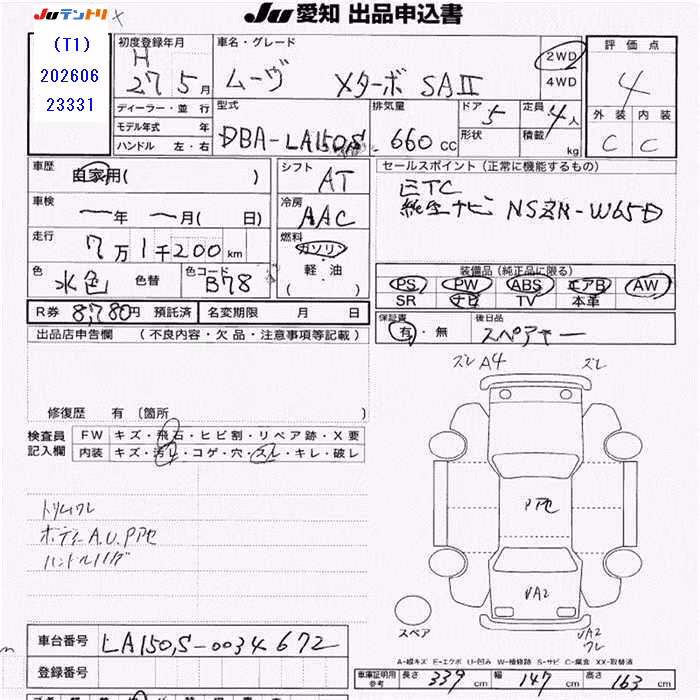 Juテントリ
Ju 愛知 出品申込書
(T1)
202606
23331
初度登録年月
H
27 5月
車名・グレード
ムーヴ Xターボ SAII
2WD
4WD
評価点
4
外装 内装
C C
ディーラー・並行
モデル年式 年
ハンドル 左・右
型式
DBA-LA150S
排気量
660 cc
ドア 5
形状
定員 4人
積載 kg
車歴
自家用( )
シフト
AT
セールスポイント(正常に機能するもの)
ETC
純正ナビ NSZN-W65D
車検
一年 一月( 日)
冷房
AAC
走行
7万1千200km
燃料
ガソリン
軽・油
( )
色
水色 色替
色コード
B78
装備品(純正品に限る)
PS PW ABS エアB AW
SR ナビ TV 本革
R券 8,780円 預託済
名変期限 月 日
保証書
有・無
後日品
スペアキー
出品店申告欄 (不良内容・欠品・注意事項等記載)
修復歴 有 〔箇所 〕
検査員
記入欄
FW キズ・飛石・ヒビ割・リペア跡・X要
内装 キズ・汚レ・コゲ・穴・スレ・キレ・破レ
トリムワレ
ボディーA.U.Pアセ
ハンドルハゲ
ズレ A4 ズレ
Pアセ
UA2
UA2
ワレ
スペア
A-線キズ E-エクボ U-凹み W-補修跡 S-サビ C-腐食 XX-取替済
車台番号 LA150S-0034672
登録番号
車庫証明用
参考
長さ 339 cm 幅 147 cm 高さ 163 cm